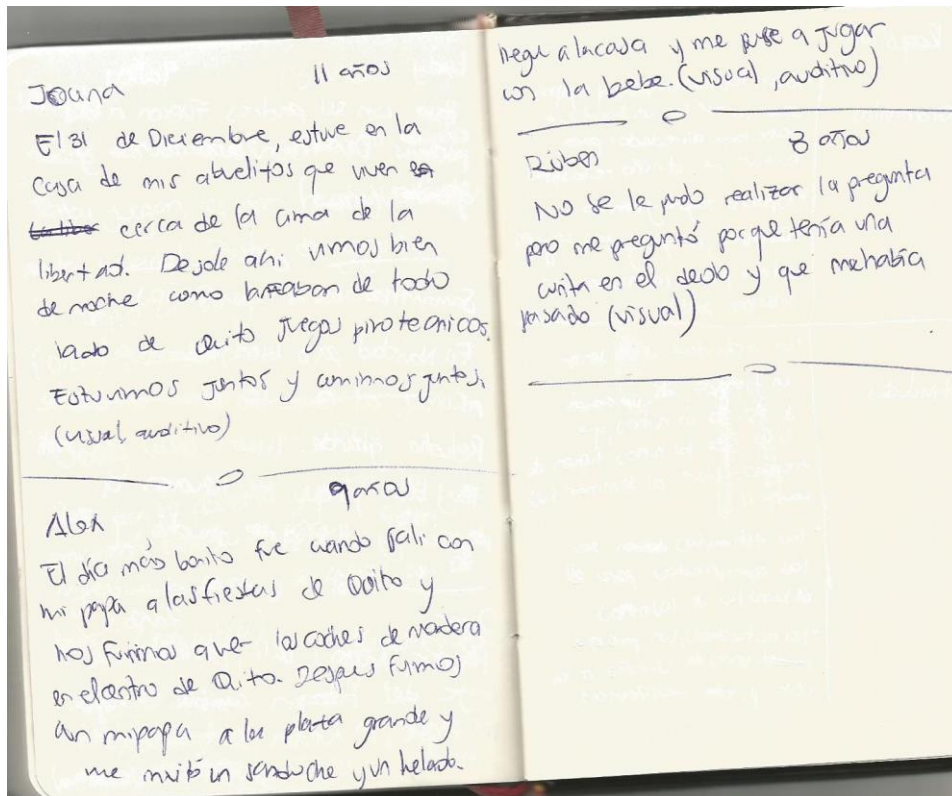 Joana 11 años
El 31 de Diciembre, estuve en la
casa de mis abuelitos que viven en
cerca de la cima de la
libertad. Desde ahi vimos bien
de noche como lanzaban de todo
lado de Quito juegos pirotecnicos.
Estuvimos juntos y comimos juntos.
(visual, auditivo)
9 años
Alex
El día más bonito fue cuando sali con
mi papa a las fiestas de Quito y
nos fuimos a ver los coches de madera
en el centro de Quito. Despues fuimos
con mi papa a la plaza grande y
me invitó un sanduche y un helado.
llegue a la casa y me puse a jugar
con la bebe. (visual, auditivo)
Rúben 8 años
No se le pudo realizar la pregunta
pero me preguntó porque tenía una
curita en el dedo y que me había
pasado (visual)